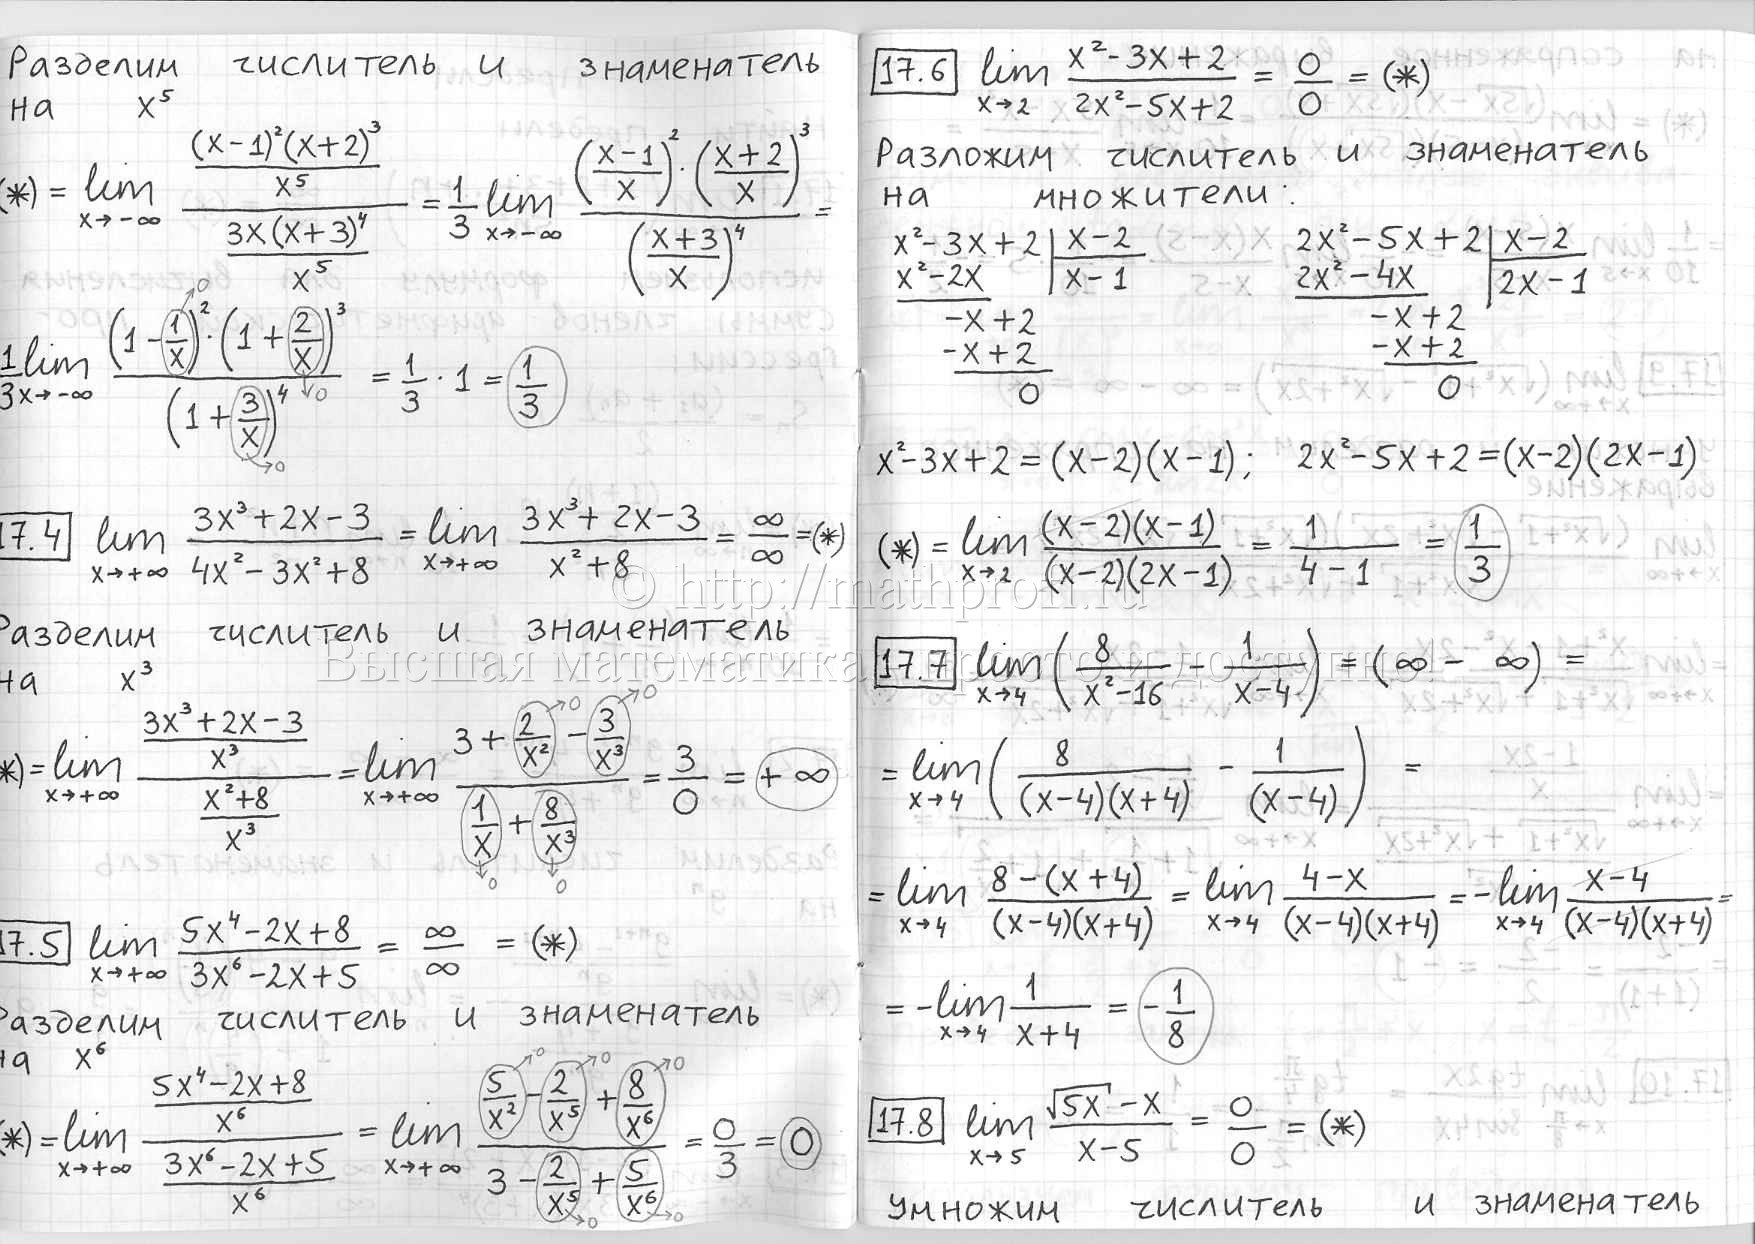 Разделим числитель и знаменатель
на x⁵
(*) = lim x→-∞ ((x-1)²(x+2)³/x⁵)/(3x(x+3)⁴/x⁵) = 1/3 lim x→-∞ (((x-1)/x)²·((x+2)/x)³)/((x+3)/x)⁴ =
1/3 lim x→-∞ ((1-1/x)²·(1+2/x)³)/(1+3/x)⁴ = 1/3 · 1 = 1/3
17.4 lim x→+∞ (3x³+2x-3)/(4x²-3x²+8) = lim x→+∞ (3x³+2x-3)/(x²+8) = ∞/∞ = (*)
Разделим числитель и знаменатель
на x³
(*) = lim x→+∞ ((3x³+2x-3)/x³)/((x²+8)/x³) = lim x→+∞ (3+2/x²-3/x³)/(1/x+8/x³) = 3/0 = +∞
17.5 lim x→+∞ (5x⁴-2x+8)/(3x⁶-2x+5) = ∞/∞ = (*)
Разделим числитель и знаменатель
на x⁶
(*) = lim x→+∞ ((5x⁴-2x+8)/x⁶)/((3x⁶-2x+5)/x⁶) = lim x→+∞ (5/x²-2/x⁵+8/x⁶)/(3-2/x⁵+5/x⁶) = 0/3 = 0
17.6 lim x→2 (x²-3x+2)/(2x²-5x+2) = 0/0 = (*)
Разложим числитель и знаменатель
на множители:
x²-3x+2 | x-2 2x²-5x+2 | x-2
x²-2x | x-1 2x²-4x | 2x-1
-x+2 -x+2
-x+2 -x+2
0 0
x²-3x+2=(x-2)(x-1); 2x²-5x+2=(x-2)(2x-1)
(*) = lim x→2 ((x-2)(x-1))/((x-2)(2x-1)) = 1/(4-1) = 1/3
17.7 lim x→4 (8/(x²-16) - 1/(x-4)) = (∞ - ∞) =
= lim x→4 (8/((x-4)(x+4)) - 1/(x-4)) =
= lim x→4 (8-(x+4))/((x-4)(x+4)) = lim x→4 (4-x)/((x-4)(x+4)) = -lim x→4 (x-4)/((x-4)(x+4)) =
= -lim x→4 1/(x+4) = -1/8
17.8 lim x→5 (√5x-x)/(x-5) = 0/0 = (*)
Умножим числитель и знаменатель
© http://mathprofi.ru
Высшая математика – просто и доступно!